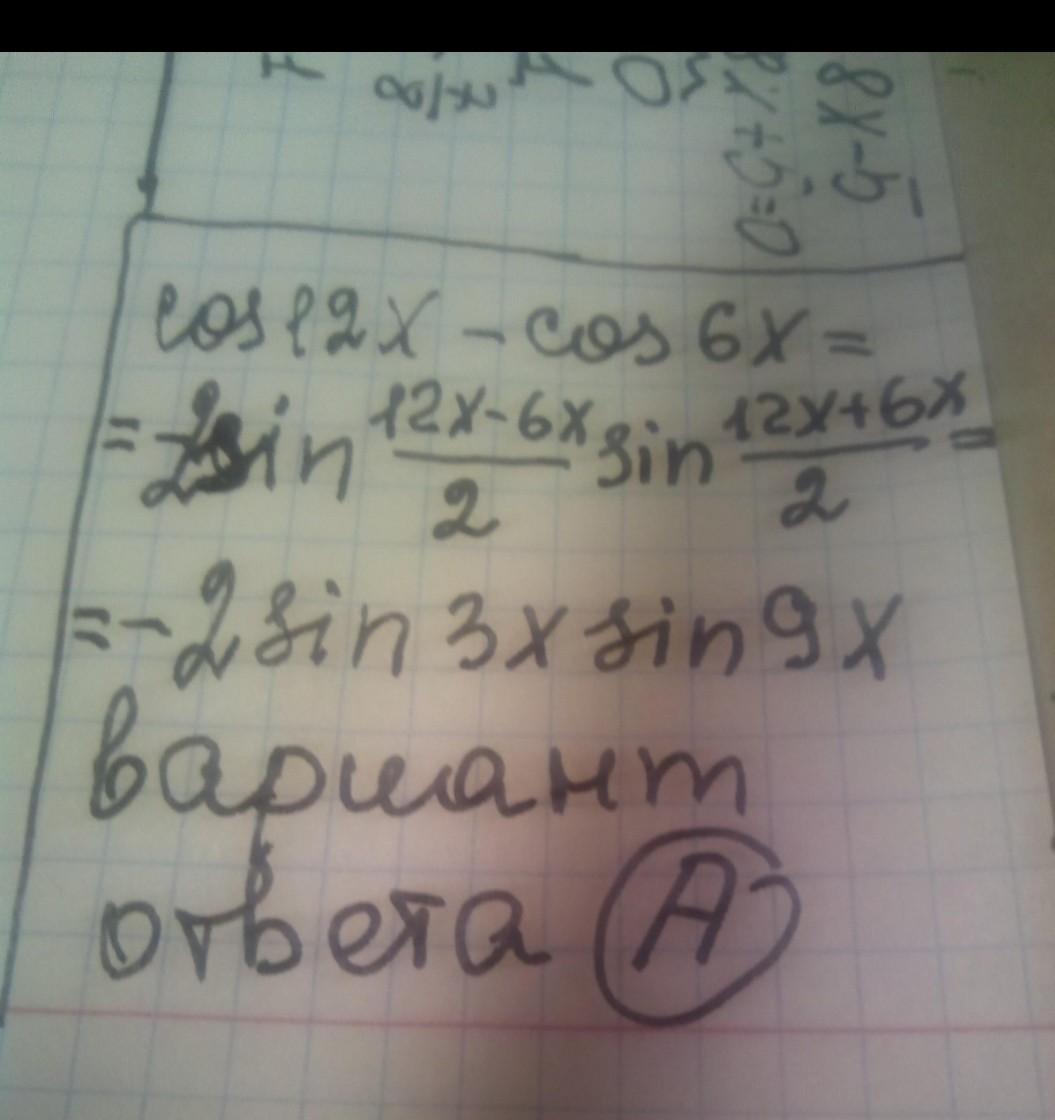 8x-5
8x+5=0
cos12x - cos6x=
= 2sin \frac{12x-6x}{2} sin \frac{12x+6x}{2} =
=-2sin3x sin9x
вариант
ответа А